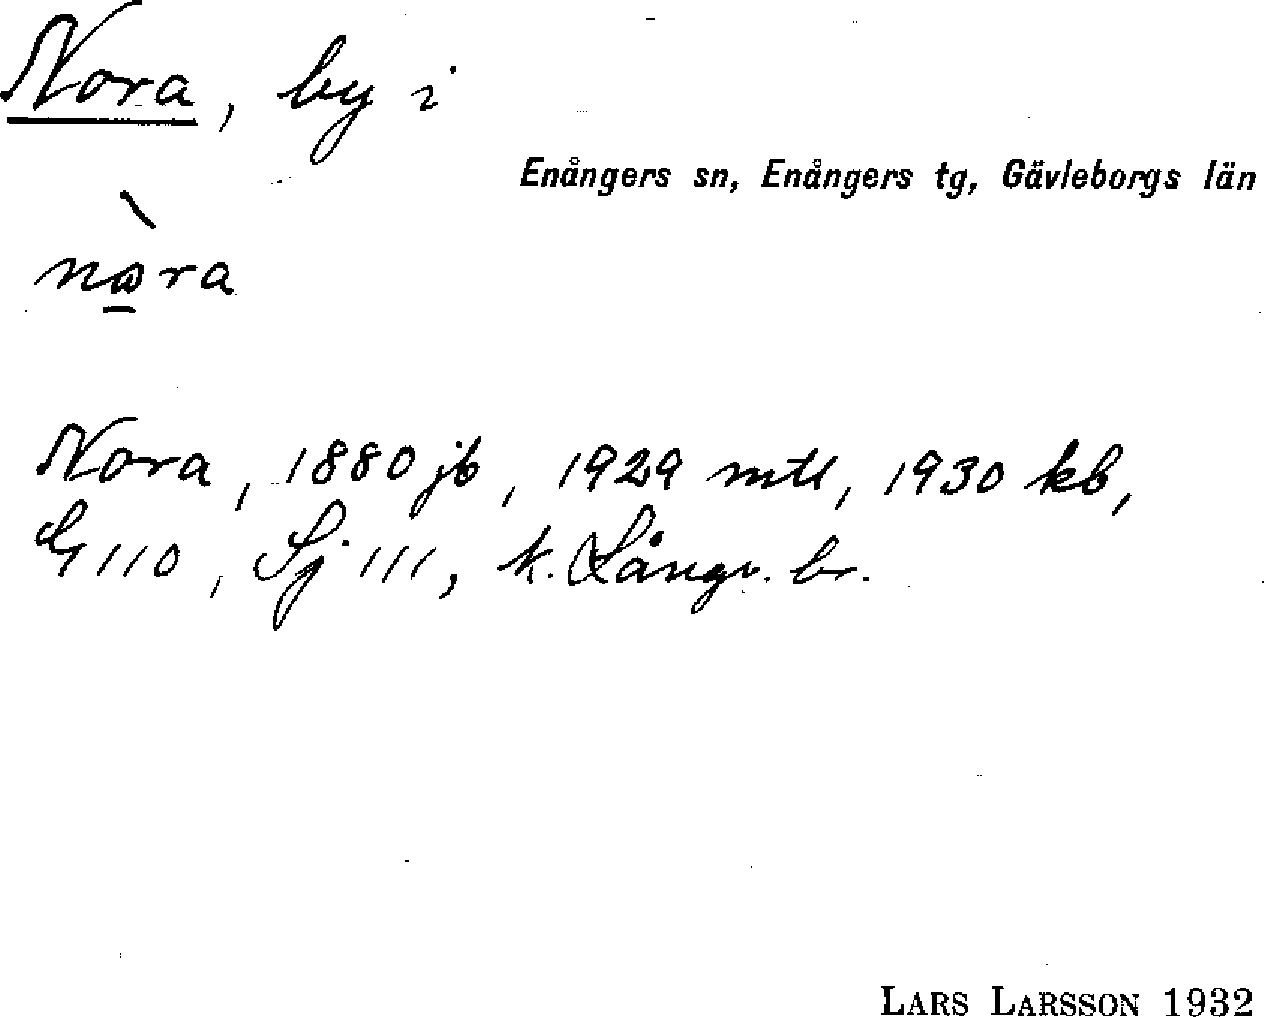 Nora, by i
Enångers sn, Enångers tg, Gävleborgs län
Nora, 1880 jb, 1929 mtl, 1930 kb,
G 110, Sj 111, k. Långv. br.
LARS LARSSON 1932